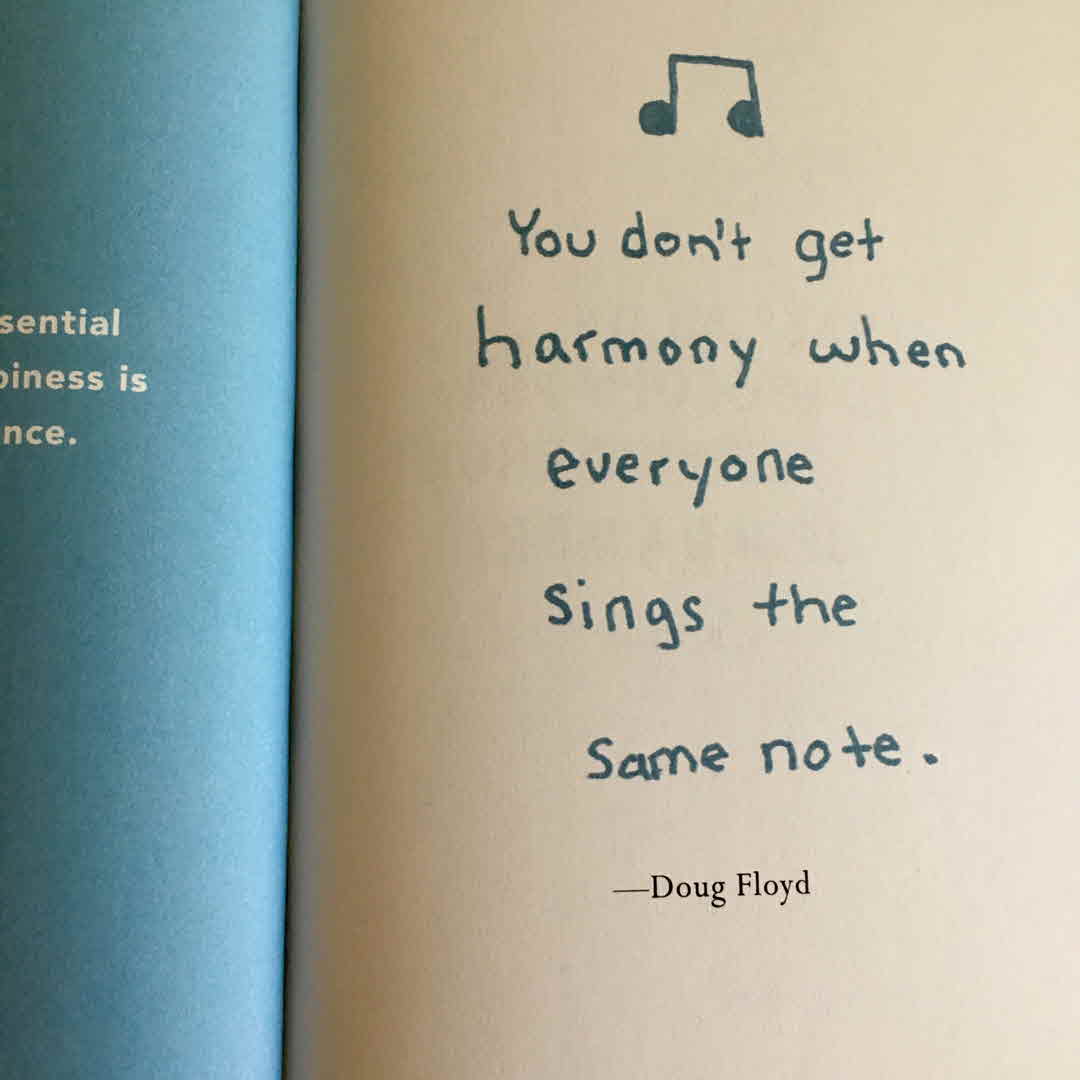 is
nce.
You don't get
harmony when
everyone
sings the
same note.
—Doug Floyd